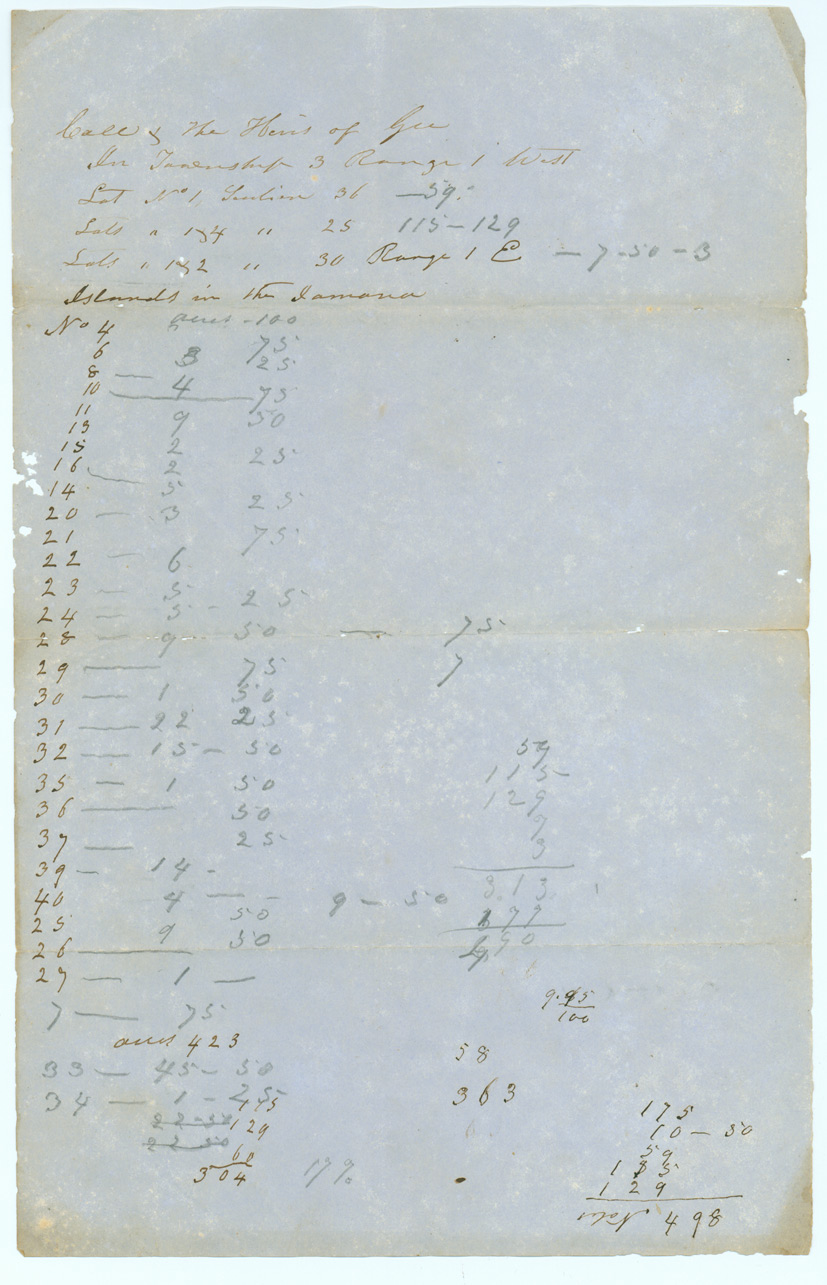 Call & the Heirs of Gee
In Township 3 Range 1 West
Lot No 1, Section 36 — 59.
Lots " 1 & 4 " 25 115 — 129
Lots " 1 & 2 " 30 Range 1 E — 7-50 - 3
Islands in the
No 4 acres - 100
6 75
8 — 3 25
10 — 4 75
11
13 9 50
15 2
16 2 25
14 — 5
20 — 3 25
21 75
22 — 6
23 — 5
24 — 5 - 25
28 — 9 50 — 75
29 — 75 7
30 — 1 50
31 — 22 25
32 — 15 — 50
35 — 1 50
36 — 50
37 — 25
39 — 14 -
40 4 —
25 50 9 — 50
26 — 9 50
27 — 1 —
7 — 75
acres 423
33 — 45 - 50
34 — 1 - 25
22-50
22 50
175
129
60
304
179
59
115
129
7
3
313
177
490
9.95
100
58
363
175
10 — 50
59
135
129
498